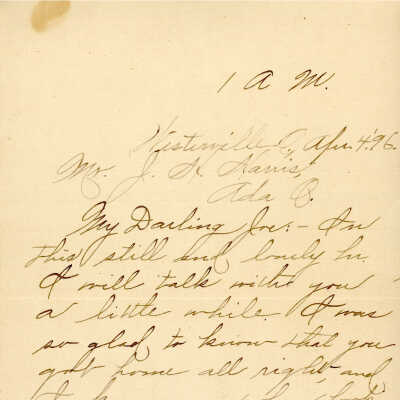 1 A M.
Westerville O, Apr. 4. '96.
Mr. J. H. Harris,
Ada O.
My Darling Joe:- In
this still and lonely hr.
I will talk with you
a little while. I was
so glad to know that you
got home all right, and
I